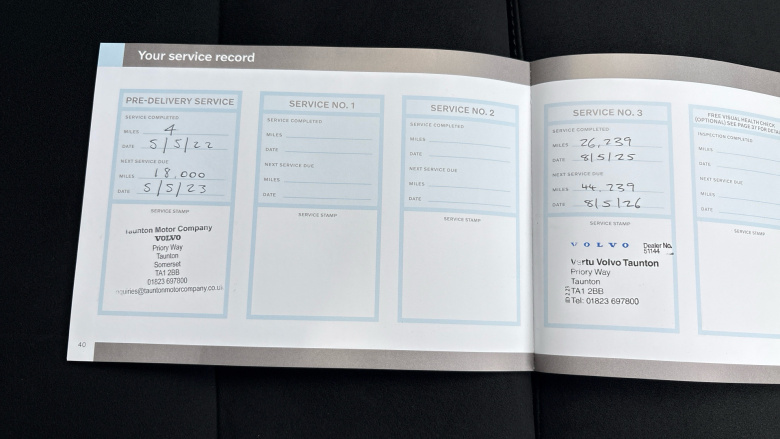 Your service record
PRE-DELIVERY SERVICE
SERVICE COMPLETED
MILES 4
DATE 5/5/22
NEXT SERVICE DUE
MILES 18,000
DATE 5/5/23
SERVICE STAMP
Taunton Motor Company
VOLVO
Priory Way
Taunton
Somerset
TA1 2BB
01823 697800
nquiries@tauntonmotorcompany.co.uk
SERVICE NO. 1
SERVICE COMPLETED
MILES
DATE
NEXT SERVICE DUE
MILES
DATE
SERVICE STAMP
SERVICE NO. 2
SERVICE COMPLETED
MILES
DATE
NEXT SERVICE DUE
MILES
DATE
SERVICE STAMP
SERVICE NO. 3
SERVICE COMPLETED
MILES 26,239
DATE 8/5/25
NEXT SERVICE DUE
MILES 44,239
DATE 8/5/26
SERVICE STAMP
VOLVO Dealer No.
51144
Vertu Volvo Taunton
Priory Way
Taunton
TA1 2BB
Tel: 01823 697800
FREE VISUAL HEALTH CHECK
(OPTIONAL) SEE PAGE 37 FOR DETA
INSPECTION COMPLETED
MILES
DATE
NEXT SERVICE DUE
MILES
DATE
SERVICE STAMP
40